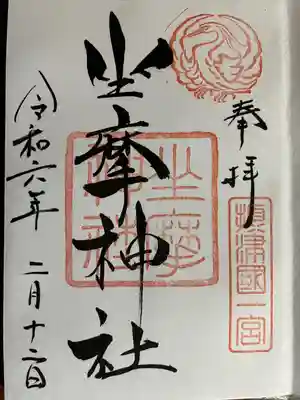 奉拝
摂津國一宮
坐摩神社
坐摩神社
令和六年 二月十二日